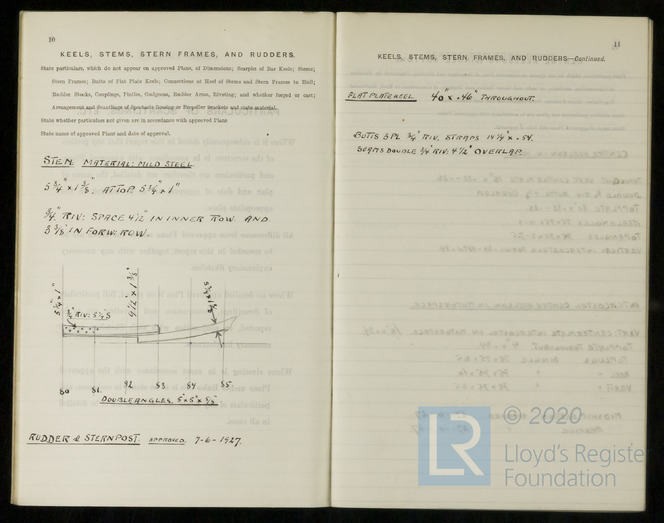 10
KEELS, STEMS, STERN FRAMES, AND RUDDERS.
State particulars, which do not appear on approved Plans, of Dimensions; Scarphs of Bar Keels; Stems;
Stern Frames; Butts of Flat Plate Keels; Connections at Heel of Stems and Stern Frames to Hull;
Rudder Stocks, Couplings, Pintles, Gudgeons, Rudder Arms, Riveting; and whether forged or cast;
Arrangement and Scantlings of Spectacle Bossing or Propeller brackets and state material.
State whether particulars not given are in accordance with approved Plans
State name of approved Plan and date of approval.
STEM. MATERIAL: MILD STEEL
5 3/4" x 1 3/8". AT TOP. 5 1/4" x 1"
3/4" RIV: SPACE 4 1/2" IN INNER ROW. AND.
3 7/8" IN FORWD ROW.
5 1/4 x 1"
3/4" RIV: 5 1/4 S
9 1/2" x 1 3/8"
5 3/4 x 1 3/8"
80 81 82 83 84 85.
DOUBLE ANGLES. 5" x 5" x 5/8"
RUDDER & STERNPOST. APPROVED. 7-6-1927.
11
KEELS, STEMS, STERN FRAMES, AND RUDDERS—Continued.
FLAT PLATE KEEL. 40" x .46" THROUGHOUT.
BUTTS 3 PL 3/4" RIV. STRAPS 14 1/4" x .54.
SEAMS DOUBLE 3/4" RIV. 4 1/2" OVERLAP.
© 2020
LR
Lloyd's Register
Foundation